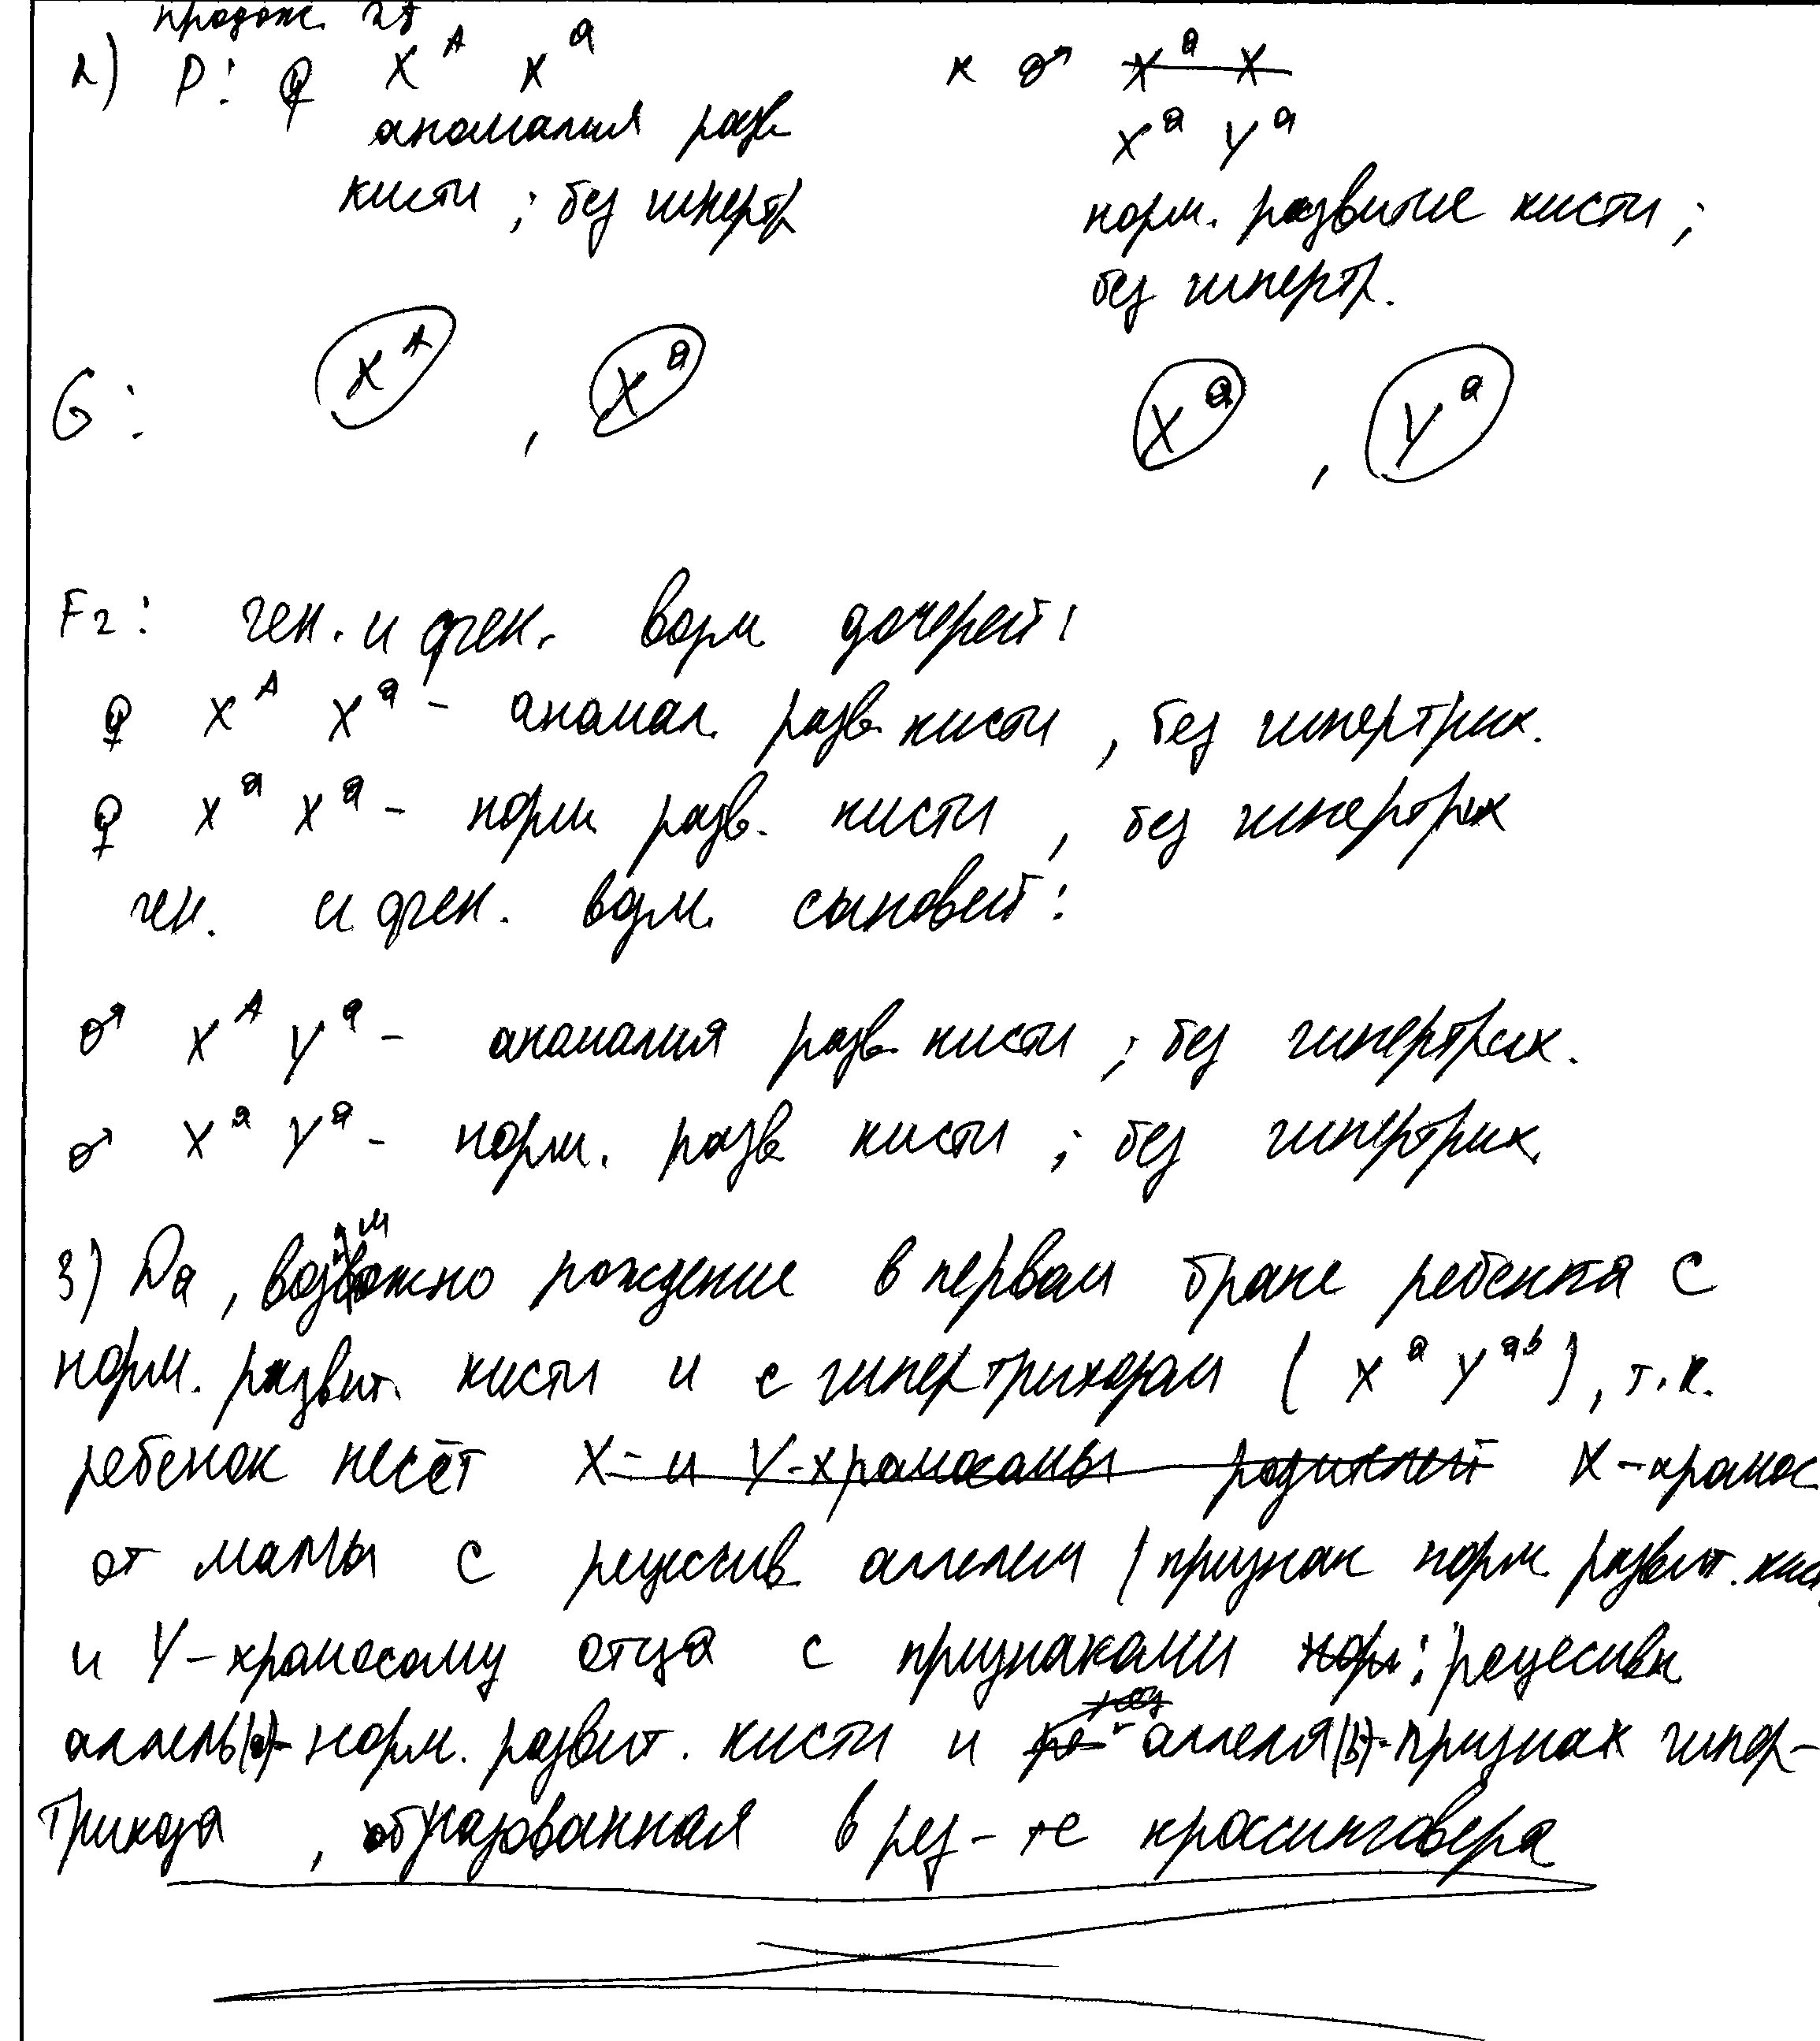 продолж. 28
2) P: ♀ X^A X^a x ♂ X^a X
аномалия разв X^a Y^a
кисти ; без гипертр норм. развитие кисти ;
без гипертр.
G: X^A , X^a X^a , Y^a
F2: ген. и фен. возм. дочерей:
♀ X^A X^a - аномал. разв. кисти , без гипертрих.
♀ X^a X^a - норм. разв. кисти , без гипертрих
ген. и фен. возм. сыновей:
♂ X^A Y^a - аномалия разв. кисти ; без гипертрих.
♂ X^a Y^a - норм. разв кисти ; без гипертрих.
3) Да, возможно рождение в первом браке ребенка с
норм. развит. кисти и с гипертрихозом ( X^a Y^ab ), т.к.
ребенок несёт X- и Y-хромосомы родителей X-хромос
от мамы с рецессив. аллелем (признак норм. развит. кист
и Y-хромосому отца с признаками норм: рецесивн
аллель(a)- норм. развит. кисти и аллеля(b)-признак гипер-
трихоза , образованная в рез-те кроссинговера